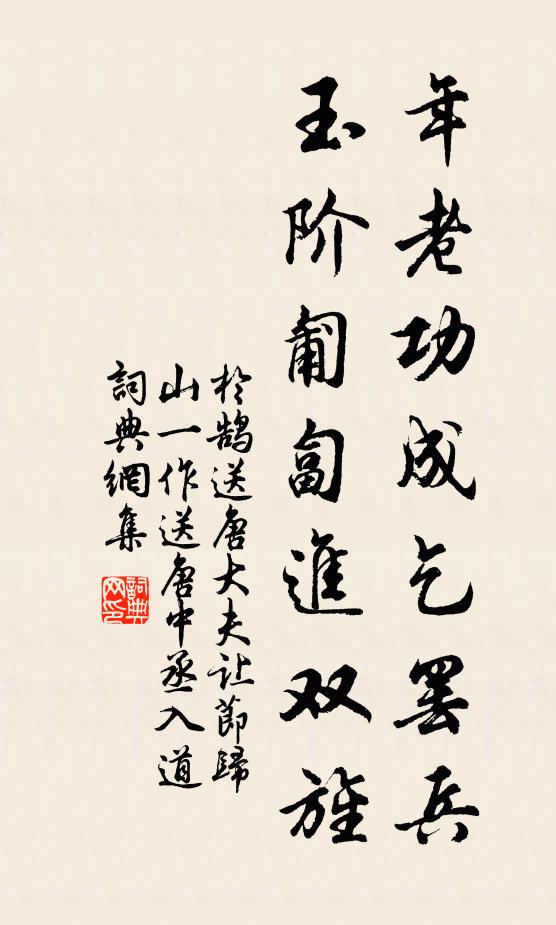 年老功成乞罢兵
玉阶匍匐進双旌
於鹄送唐大夫让節歸
山一作送唐中丞入道
詞典網集
詞典网印